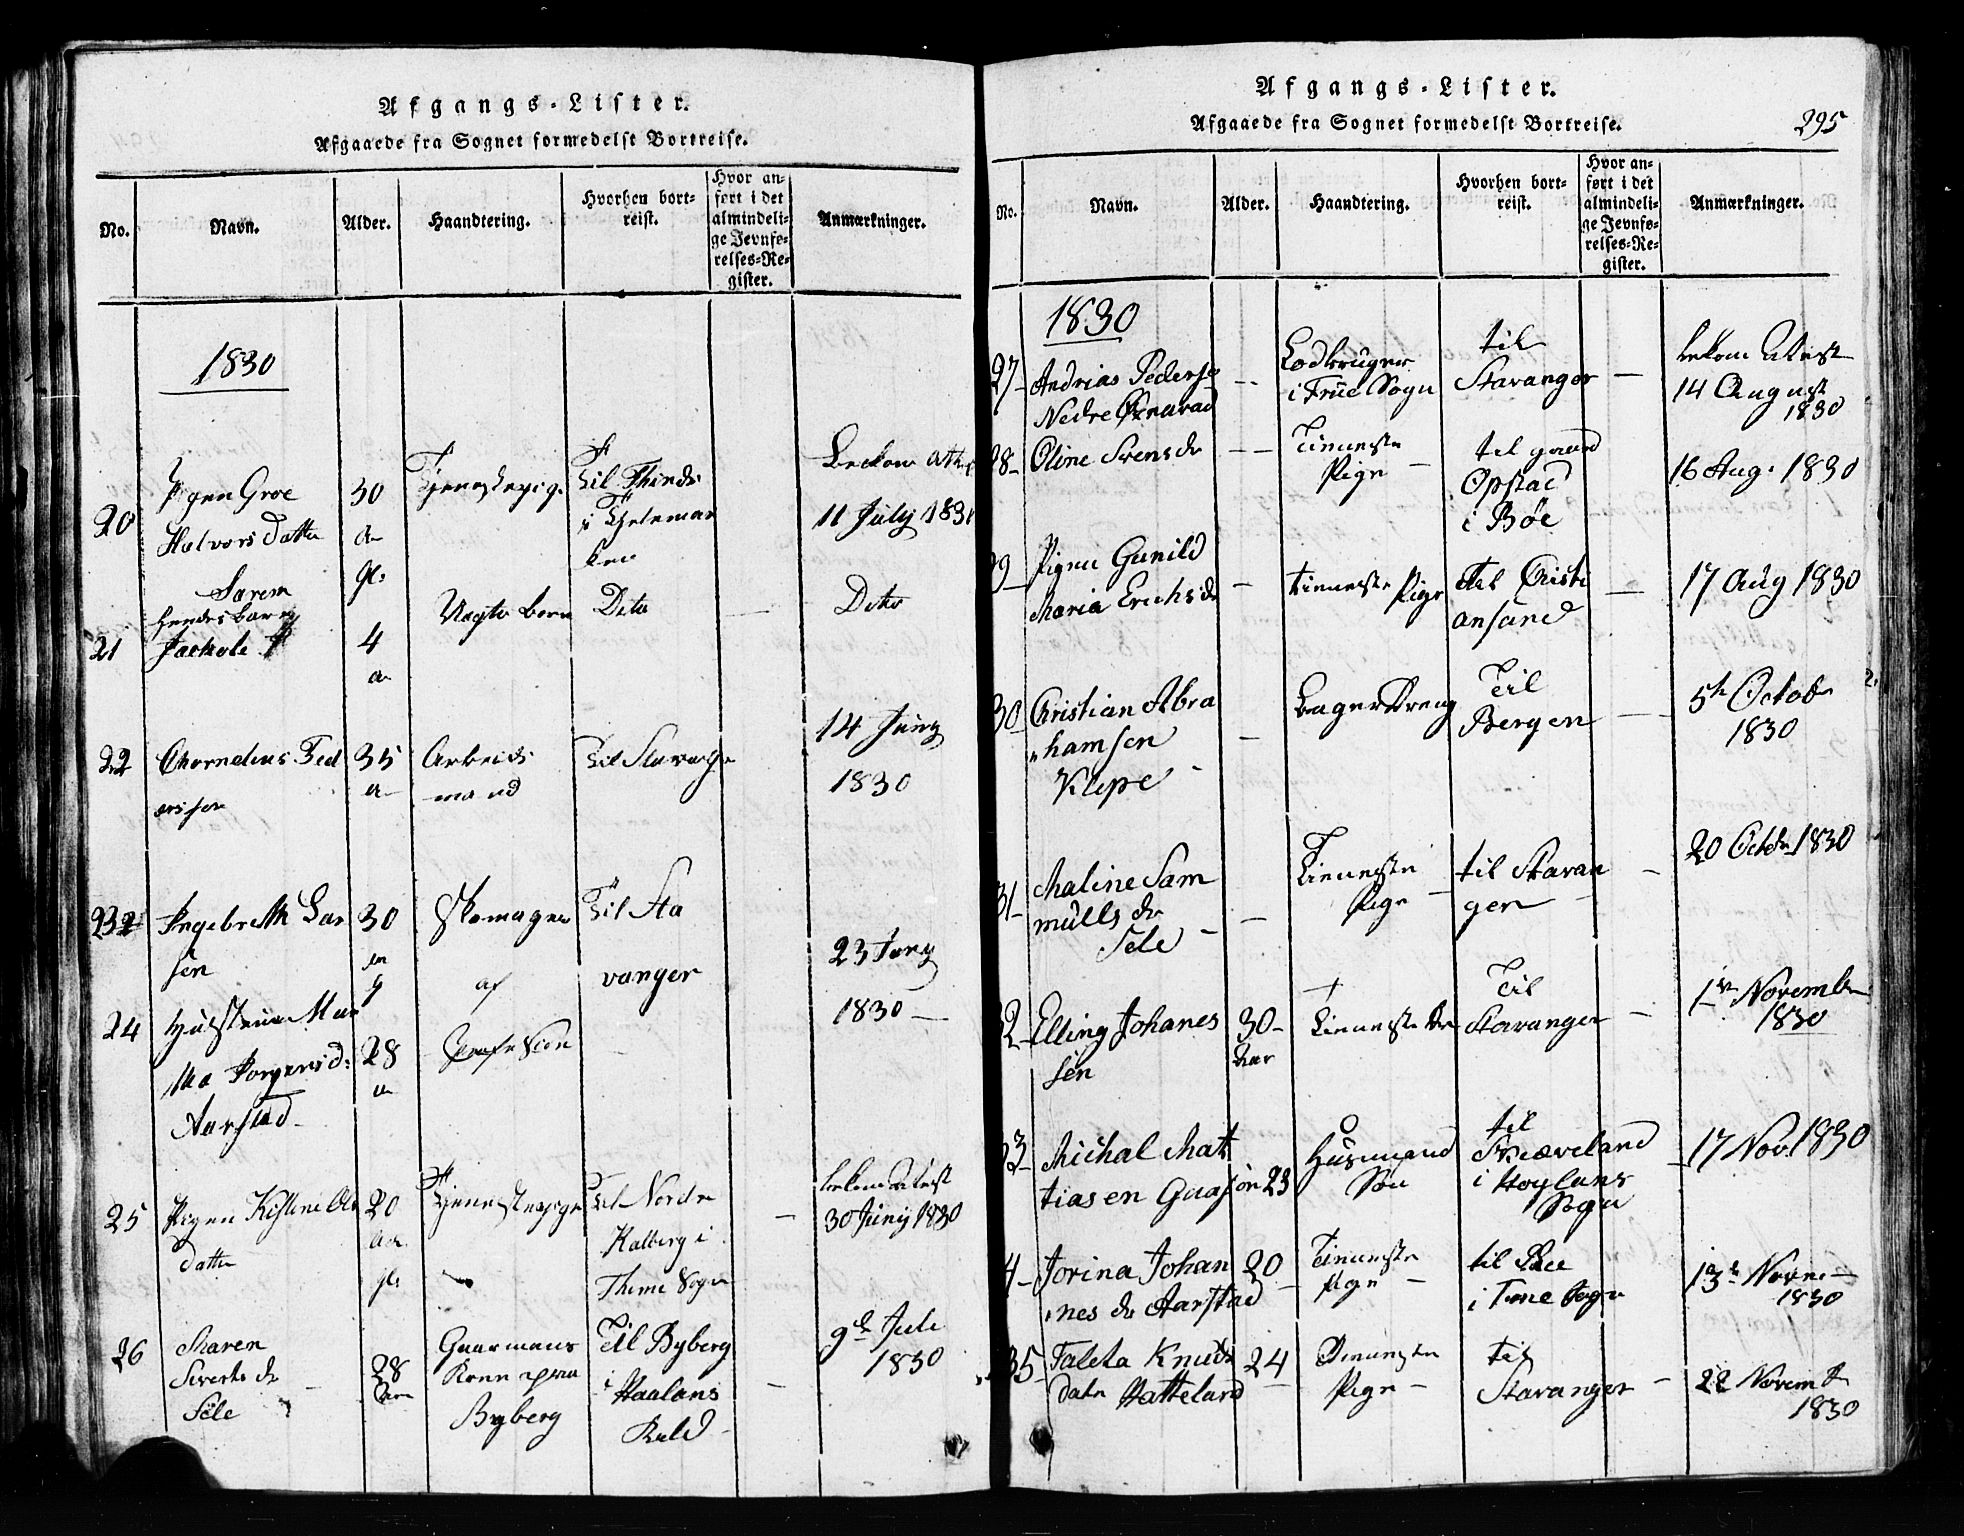 Afgangs-Lister.
Afgaaede fra Sognet formedelst Bortreise.
No.
Navn.
Alder.
Haandtering.
Hvorhen bort-
reist.
Hvor an-
ført i det
almindeli-
ge Jevnfø-
relses-Re-
gister.
Anmærkninger.
1830
20
Pigen Groe
Halvors Datter
30
Aar
gl:
Tjenestepig.
Til Thinds
i Thelemar
ken
Beckom Attest
11 July 1830
21
Søren
Hendes barn
Jackole
4
a
Ungte barn
Dito
Dito
22
Chornelius Ped
ersen
35
a
Arbeids
mand
Til Stavanger
14 Juny
1830
23
Ingebreth Lar
sen
30
Skomager
af
Til Sta
vanger
23 Juny
1830
24
Ma Torgersd:
Aarstad
28
a
25
Pigen Kistine
datter
20
Aar
gl:
Tjenestepige
Til Nordre
Kalberg i
Thime Sogn
bekom Attest
30 Juny 1830
26
Maren
Siverts dr
Sele
28
Aar
Gaarmans
Kone paa
Byberg
Til Byberg
i Haalans
Ræld
9de Juli
1830
Afgangs-Lister.
Afgaaede fra Sognet formedelst Bortreise.
295
No.
Navn.
Alder.
Haandtering.
Hvorhen bort-
reist.
Hvor an-
ført i det
almindeli-
ge Jevnfø-
relses-Re-
gister.
Anmærkninger.
1830
27
Andrias Pederse
Nedre Øxnavad
Lodbruger
i Frue Sogn
til
Stavanger
bekom Attest
14 August
1830
28
Oline Svens dr
Tieneste
Pige
til gaard
Opstad
i Bøe
16 Aug: 1830
29
Pigen Gunild
Maria Erichs dr
tieneste Pige
til Cristi
ansand
17 Aug 1830
30
Christian Abra
hamsen
Klepe
Bager Dreng
Til
Bergen
5te Octob
1830
31
Maline Sam
mulls dr
Sele
Tieneste
Pige
til Stavan
gen
20 Octbr 1830
32
Elling Johanes
sen
30
Aar
Tieneste Dr
Til
Stavanger
1ste Novembr
1830
33
Michal Mat
tiasen Guasøn
23
Husmand
Søn
til
Skiæveland
i Høylans
Sogn
17 Nov. 1830
34
Jorina Johan
nes dr Aarstad
20
Tieneste
Pige
til
i Time Sogn
13de Novem
1830
35
Taleta Knuds
datr Hatteland
24
Tieneste
Pige
til
Stavanger
22 Novembr
1830